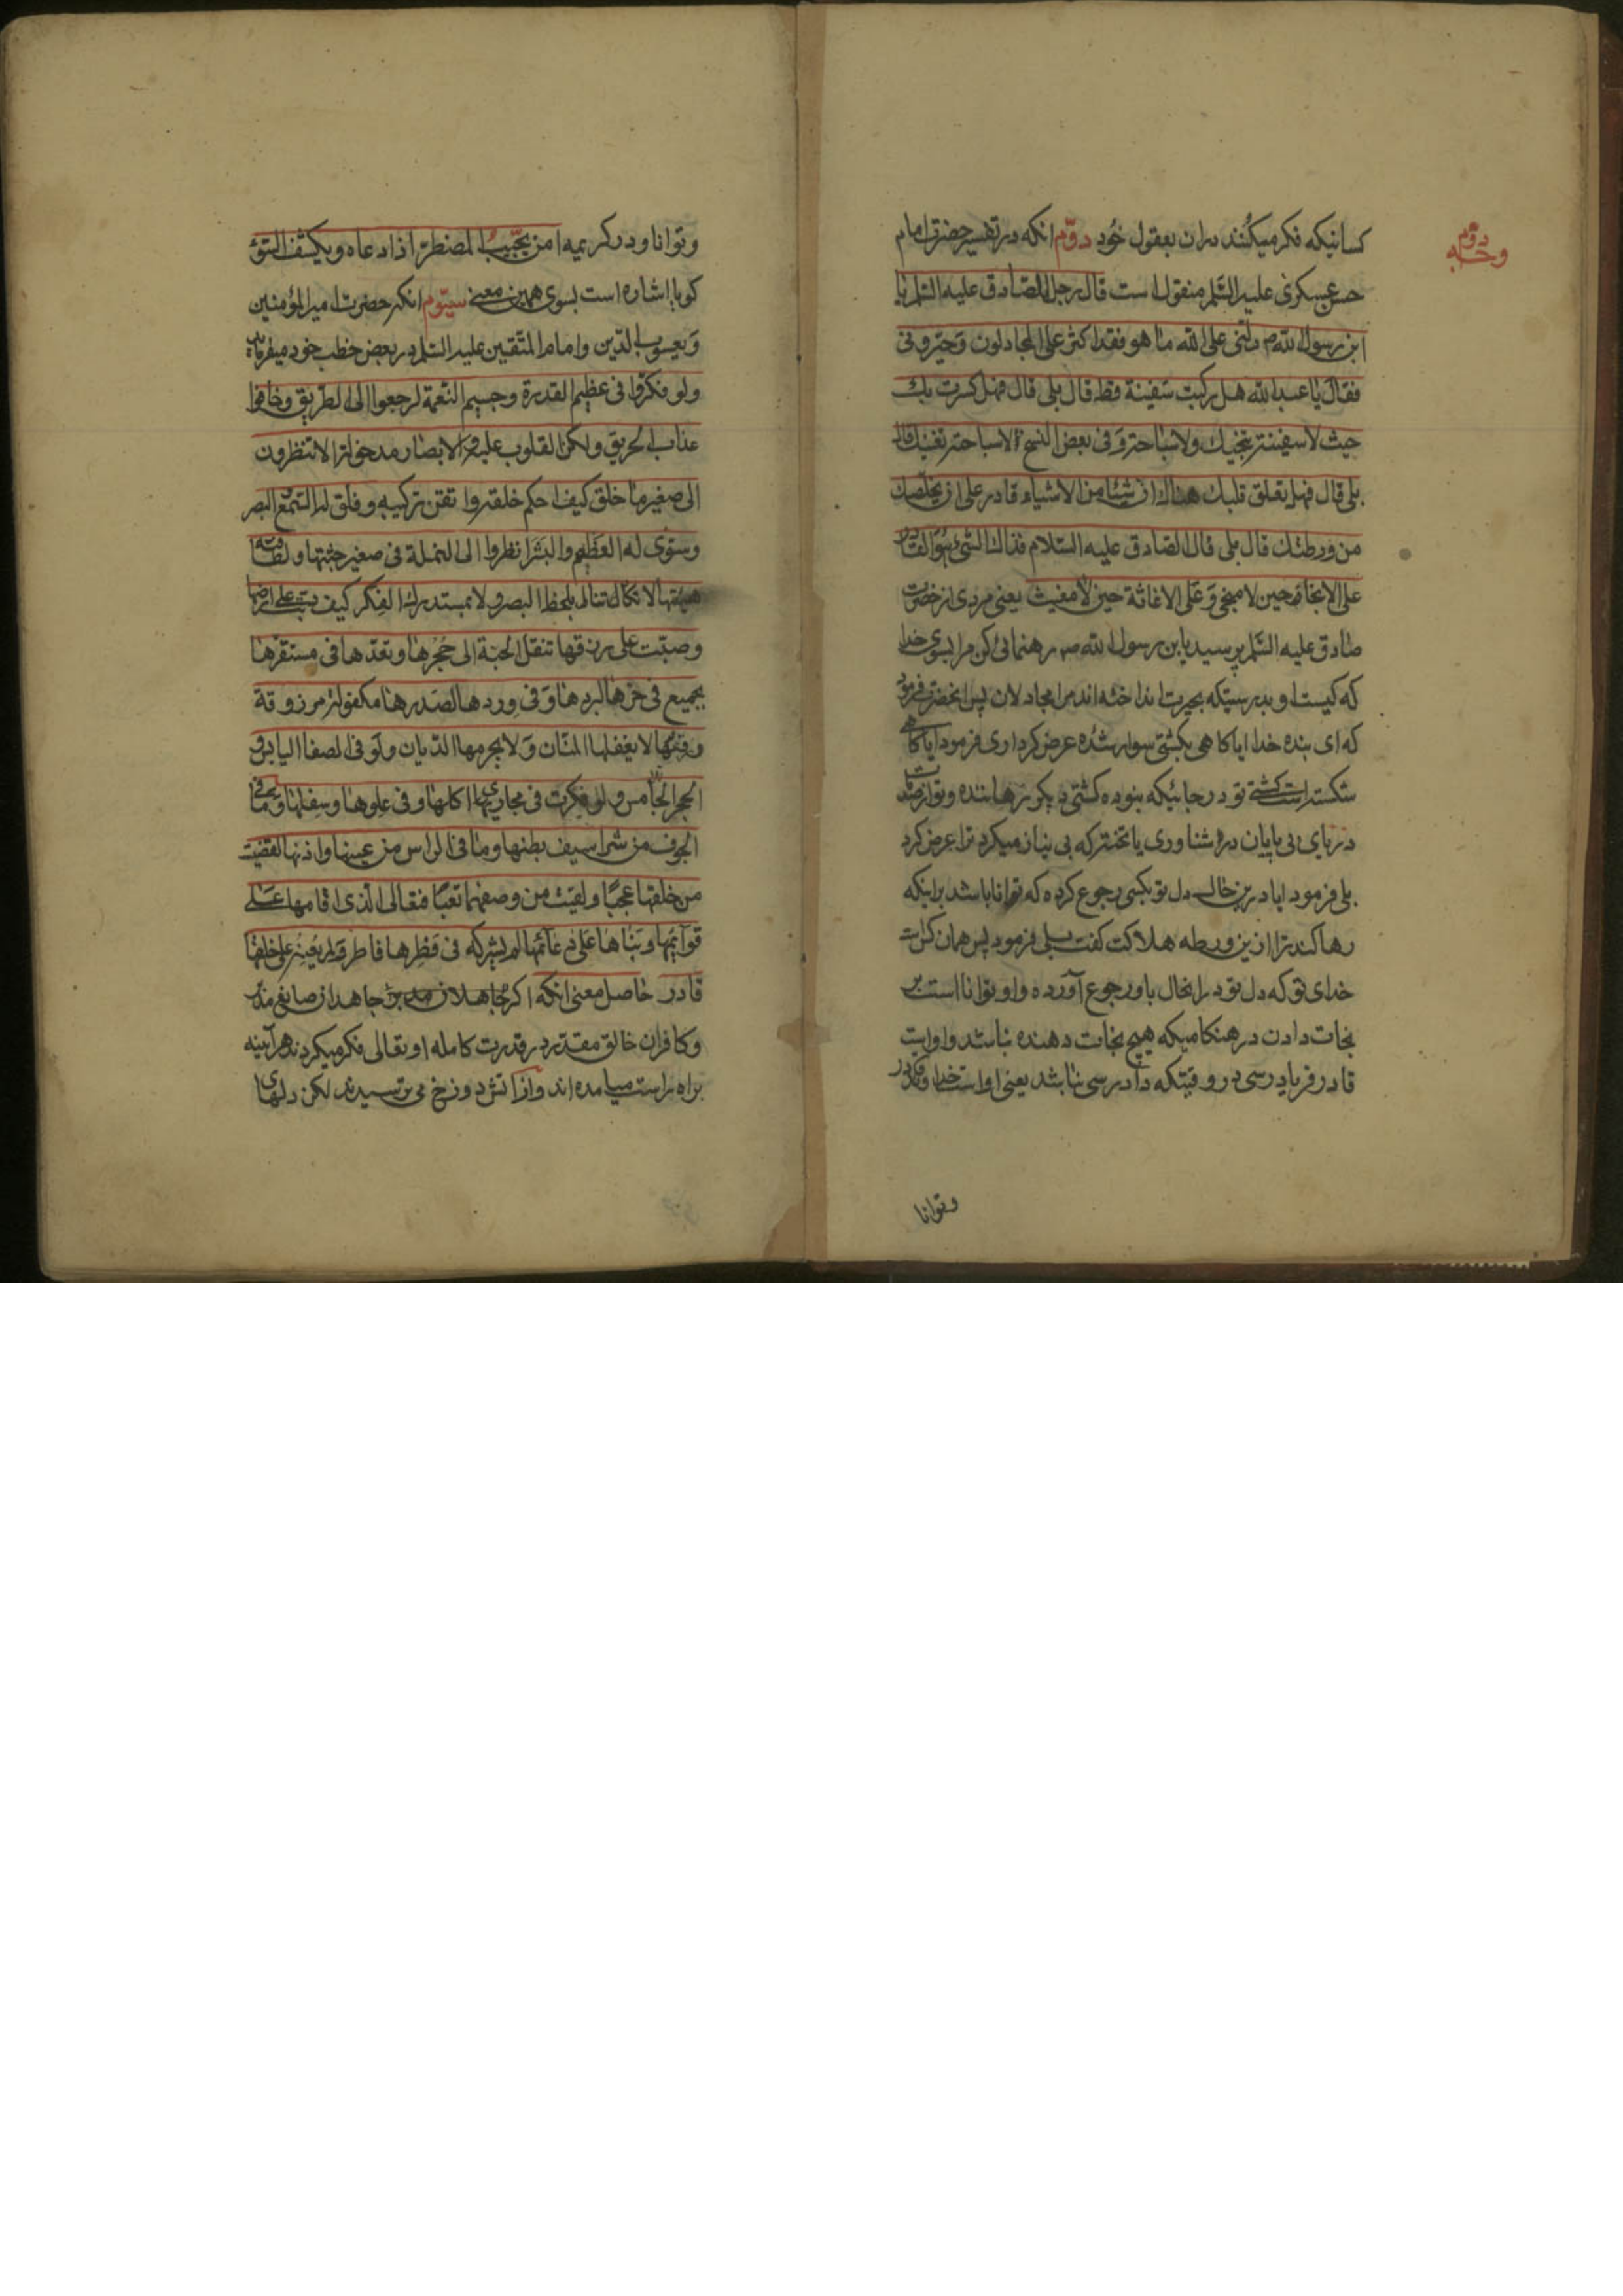 وجه دوم
کسانیکه فکر میکنند دران بعقول خود دوّم انکه در تفسیر حضرت امام
حسن عسکری علیه السّلم منقول است قال رجل للصّادق علیه السّلم یا
ابن رسول الله ص دلّنی علی الله ما هو فقد اکثر علیّ المجادلون و حیّرونی
فقال یا عبد الله هل رکبت سفینة قط قال بلی قال فهل کسرت بك
حیث لا سفینة تنجیك ولا سباحة و فی بعض النسخ الاسباحة تغنیك قال
بلی قال فهل یتعلق قلبك هنالك ان شیئا من الاشیاء قادر علی ان یخلصك
من ورطتك قال بلی قال الصّادق علیه السّلام فذالك الشیٔ هو القادر
علی الانجاء حین لا منجی وَ عَلَی الاغاثة حین لا مغیث یعنی مردی از حضرت
صادق علیه السّلم پرسید یا بن رسول الله ص رهنمائی کن مرا بسوی خدا
که کیست او بدرستیکه بحیرت انداخته اند مرا مجادلان پس انحضرت فرمود
که ای بنده خدا ایا کاهی بکشتی سوار شده عرض کرد اری فرمود ایا کاهی
شکسته است کشتی تو در جائیکه نبوده کشتی دیکر رهاننده و توان صلابت
دریای بی پایان در اشناوری یا تخته که بی نیاز میکرد ترا عرض کرد
بلی فرمود ایا درین حال دل تو بکسی رجوع کرده که توانا باشد براینکه
رها کند ترا ازین ورطه هلاکت کفت بلی فرمود پس همان کس است
خدای تو که دل تو درانحال باو رجوع آورده و او توانا است بر
نجات دادن در هنکامیکه هیچ نجات دهنده نباشد و او است
قادر فریاد رسی در وقتیکه داد رسی نباشد یعنی او است خدا و قادر
وتوانا
وتوانا و در کریمه امن یجیب المضطرّ اذا دعاه ویکشف السّوٓء
کویا اشاره است بسوی همین معنی سیّوم انکه حضرت امیر المؤمنین
وَ یعسوب الدّین و امام المتّقین علیه السّلم در بعض خطب خود میفرماید
ولو فکرّوا فی عظیم القدرة وجسیم النّعمة لرجعوا الی الطّریق وخافوا
عذاب الحریق ولکن القلوب علیلة والابصار مدخولة الا تنظرون
الی صغیر ما خلق کیف احکم خلقه واتقن ترکیبه وفلق له السّمع والبصر
وسوّی له العظم والبشر انظروا الی النملة فی صغیر جثتها ولطافة
هیئتها لا تکاد تنال بلحظ البصر ولا بمستدرك الفکر کیف دبّت علی ارضها
وصبّت علی رزقها تنقل الحبّة الی جُحرها وتعدّها فی مستقرّها
یجمیع فی حرّها لبردها وَ فی وِردها لصَدرها مکفولة مرزوقة
وفقها لا یغفلها المنّان وَ لا یحرمها الدّیان ولو فی الصفا الیابس و
الحجر الجامس ولو فکرت فی مجاری اکلها وفی علوها وسفلها وما فی
الجوف من شراسیف بطنها وما فی الراس من عینها واذنها لقضیت
من خلقها عجبًا ولقیت من وصفها تعبًا فتعالی الّذی اقامها علی
قوآئمها وبناها علی دعآئمها لم یشرکه فی فطرها فاطر ولم یُعِنه علی خلقها
قادر حاصل معنی انکه اکر جاهلان جاحد از صانع مدبّر
وکافران خالق مقدّر در قدرت کامله او تعالی فکر میکردند هرآینه
براه راست میامده اند و از آتش دوزخ می ترسیدند لکن دلهای